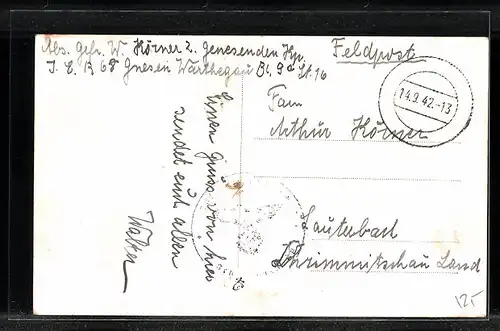 Abs. Gefr. W. Körner 2. Genesenden Kp.
I. E. R 68 Gnesen Warthegau Bl. 9a St. 16
Feldpost
14.9.42.-13
Fam
Arthur Körner
Lauterbach
Crimmitschau Land
Einen Gruss von hier
sendet euch allen
Walter
125